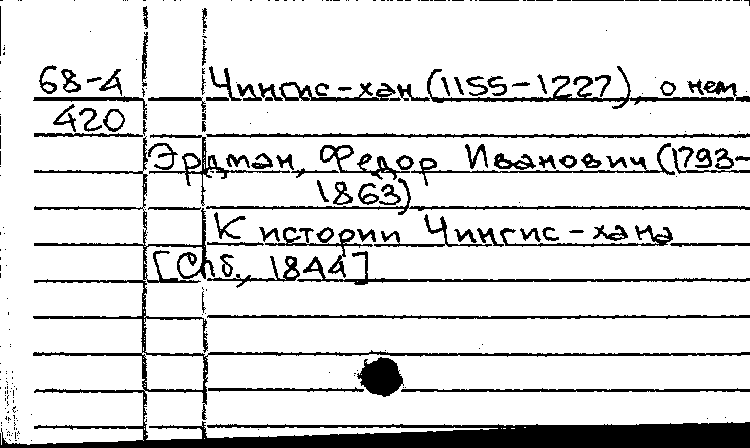 68-4 Чингис-хан (1155-1227), о нем
420
Эрдман, Федор Иванович (1793-
1863).
К истории Чингис-хана
[Спб., 1844]